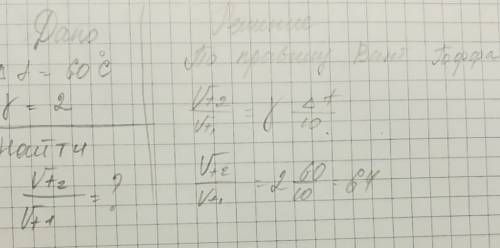 Дано
Δt = 60°C
γ = 2
Найти
Vt2/Vt1 = ?
Решение
По правилу Вант Гоффа
Vt2/Vt1 = γ Δt/10
Vt2/Vt1 = 2 60/10 = 64